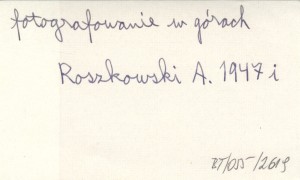 fotografowanie w górach
Roszkowski A. 1947 i
RT/055/2619